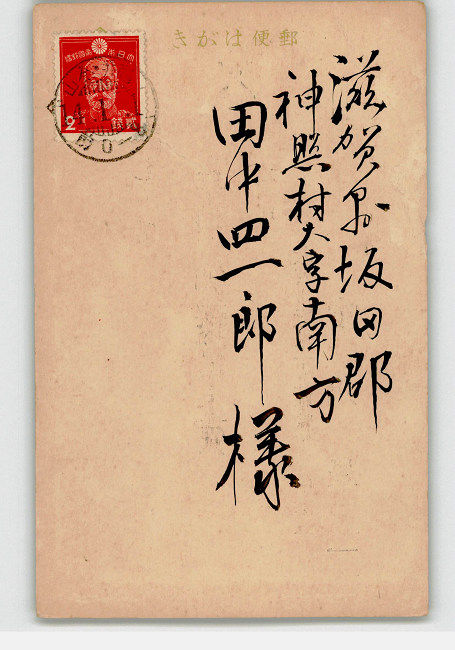 きがは便郵
滋賀县坂田郡
神照村大字南方
田中四一郎様
大日本帝國郵便
2 銭 貳
前0-8